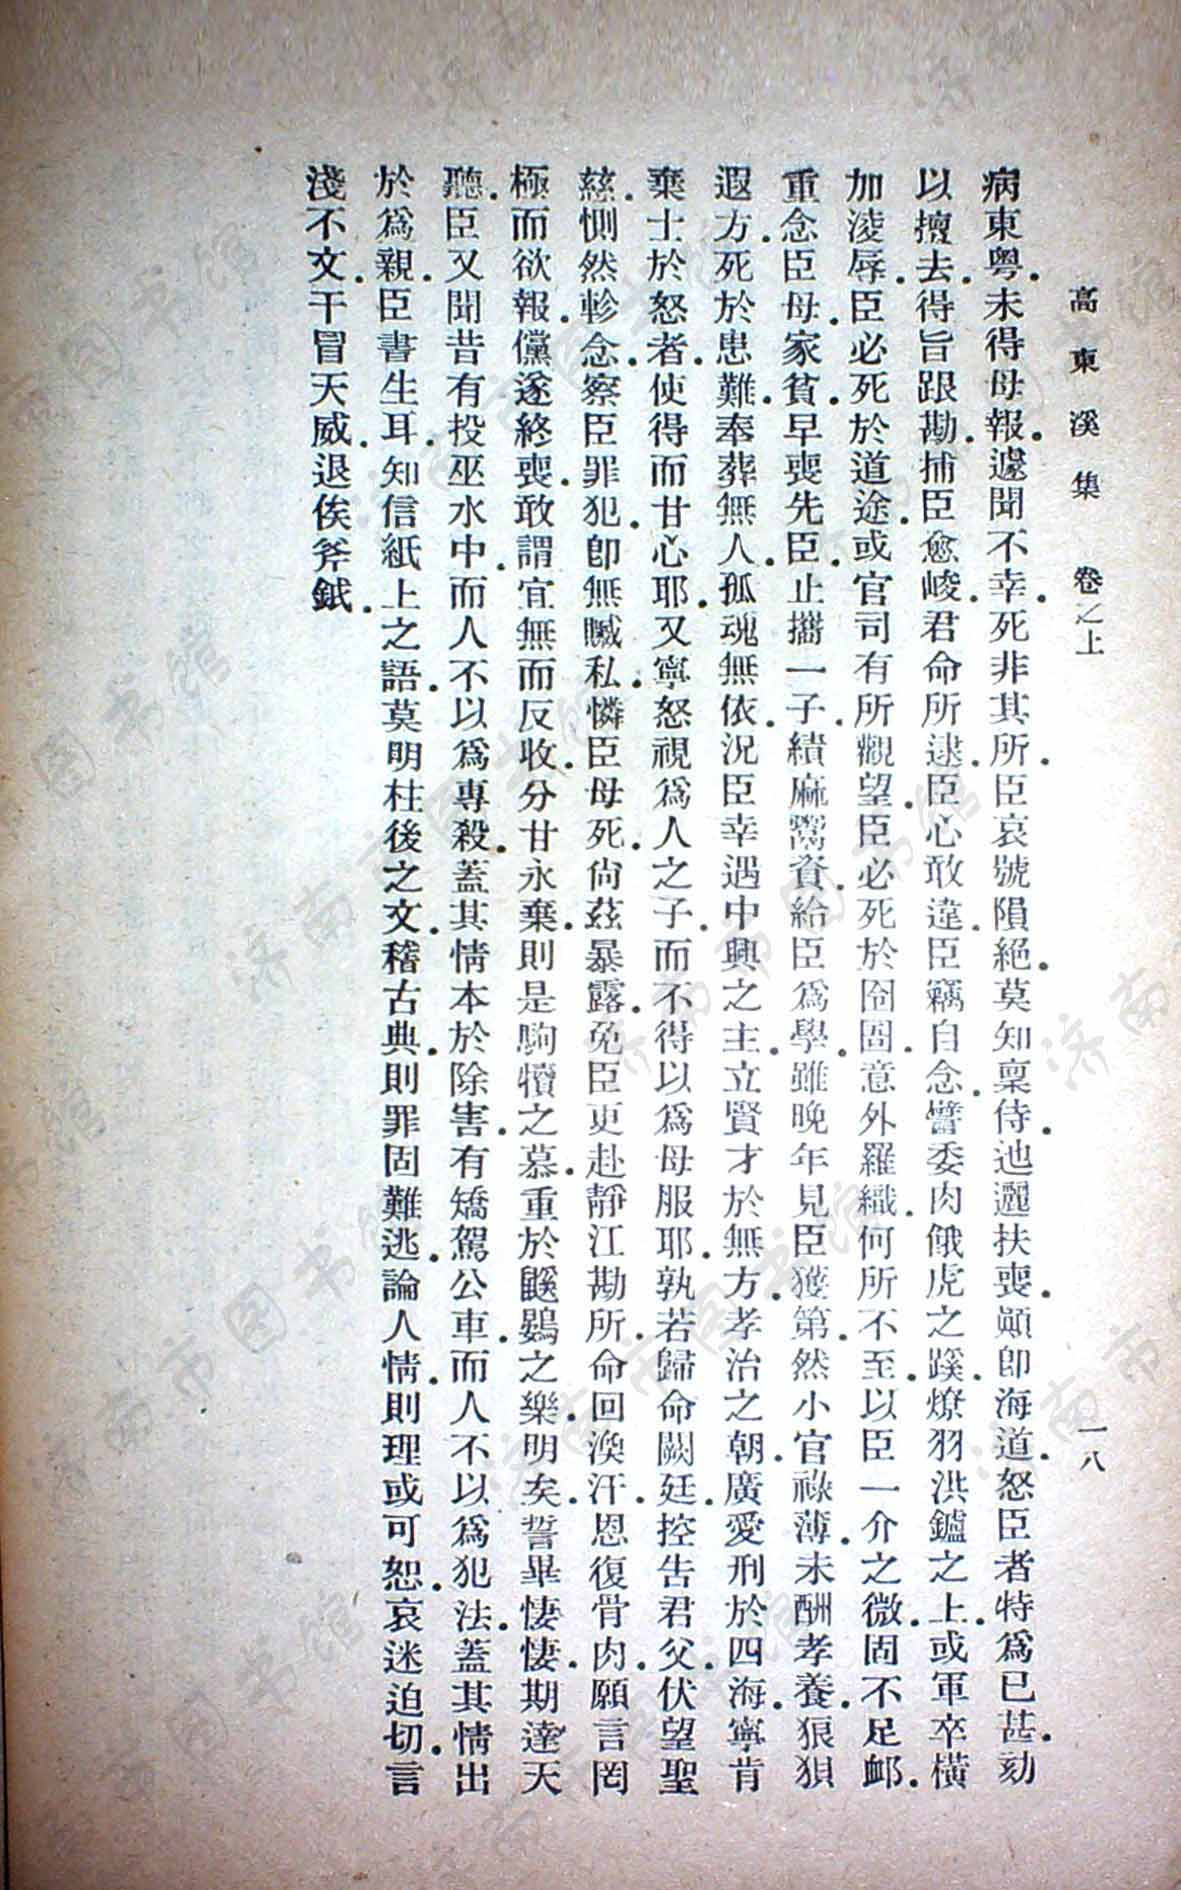 高東溪集　卷之上　一八
病東粵。未得母報。遽聞不幸。死非其所。臣哀號隕絕。莫知稟侍。迆邐扶喪。顚卽海道。怒臣者特爲已甚。劾
以擅去。得旨跟勘。捕臣愈峻。君命所逮。臣心敢違。臣竊自念。譬委肉餓虎之蹊。燎羽洪鑪之上。或軍卒橫
加淩辱。臣必死於道途。或官司有所觀望。臣必死於囹圄。意外羅織。何所不至。以臣一介之微。固不足卹。
重念臣母。家貧。早喪先臣。止攜一子。績麻鬻資。給臣爲學。雖晚年見臣獲第。然小官祿薄。未酬孝養。狼狽
遐方。死於患難。奉葬無人。孤魂無依。況臣幸遇中興之主。立賢才於無方。孝治之朝。廣愛刑於四海。寧肯
棄士於怒者。使得而甘心耶。又寧怒視爲人之子。而不得以爲母服耶。孰若歸命闕廷。控告君父。伏望聖
慈。惻然軫念。察臣罪犯。卽無贓私。憐臣母死。尙茲暴露。免臣更赴靜江勘所。命回渙汗。恩復骨肉。願言罔
極而欲報。儻遂終喪。敢謂宜無而反收。分甘永棄。則是駒犢之慕。重於鼷鷃之樂。明矣。誓畢悽悽。期達天
聽。臣又聞昔有投巫水中。而人不以爲專殺。蓋其情本於除害。有矯駕公車。而人不以爲犯法。蓋其情出
於爲親。臣書生耳。知信紙上之語。莫明柱後之文。稽古典。則罪固難逃。論人情。則理或可恕。哀迷迫切。言
淺不文。干冒天威。退俟斧鉞。
济南市图书馆